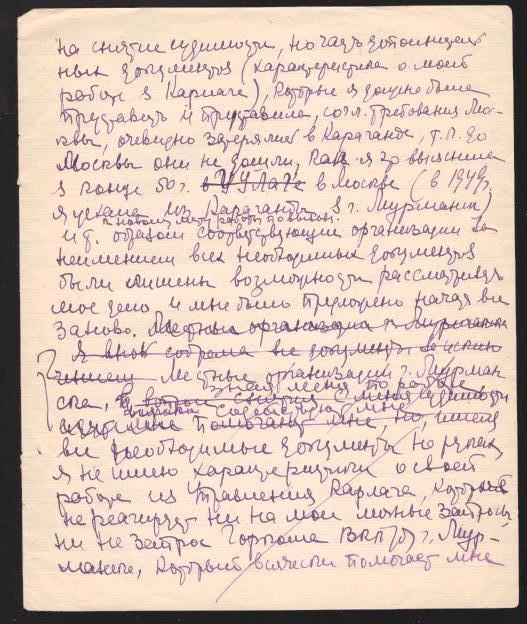 на снятие судимости, но часть дополнитель
ных документов (характеристика о моей
работе в Карлаге), которые я должна была
представить и представила, согл. требования Мо-
сквы, очевидно затерялись в Караганде, т.к. до
Москвы они не дошли, как я это выяснила
в конце 50 г. в Москве (в 1949 г.
я уехала из Караганды в г. Мурманск)
к новому месту работы по вызову.
и т. образом соответствующие организации за
неимением всех необходимых документов
были лишены возможности рассмотреть
мое дело и мне было предложено начать все
заново. Местные организации г. Мурманска
Я вновь собрала все документы за исклю
чением Местные организации г. Мурман
ска, зная меня по работе
в вопросе снятия с меня судимости
всячески содействуют мне
помогают мне, но, имея
все необходимые документы на руках,
я не имею характеристики о своей
работе из Управления Карлага, который
не реагирует ни на мои личные запросы
ни на запрос Горкома ВКП(б) г. Мур-
манска, который всячески помогает мне